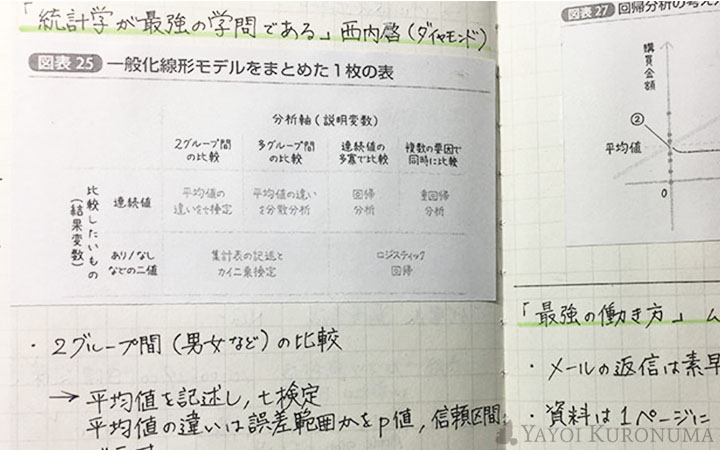 「統計学が最強の学問である」西内啓(ダイヤモンド)
図表25 一般化線形モデルをまとめた1枚の表
分析軸(説明変数)
2グループ間の比較
多グループ間の比較
連続値の多寡で比較
複数の要因で同時に比較
比較したいもの(結果変数)
連続値
平均値の違いをt検定
平均値の違いを分散分析
回帰分析
重回帰分析
あり/なしなどの二値
集計表の記述とカイ二乗検定
ロジスティック回帰
・2グループ間(男女など)の比較
→平均値を記述し,t検定
平均値の違いは誤差範囲かをp値,信頼区間
図表27 回帰分析の考え
購買金額
②
平均値
0
「最強の働き方」ム
・メールの返信は素早
・資料は1ページに
YAYOI KURONUMA